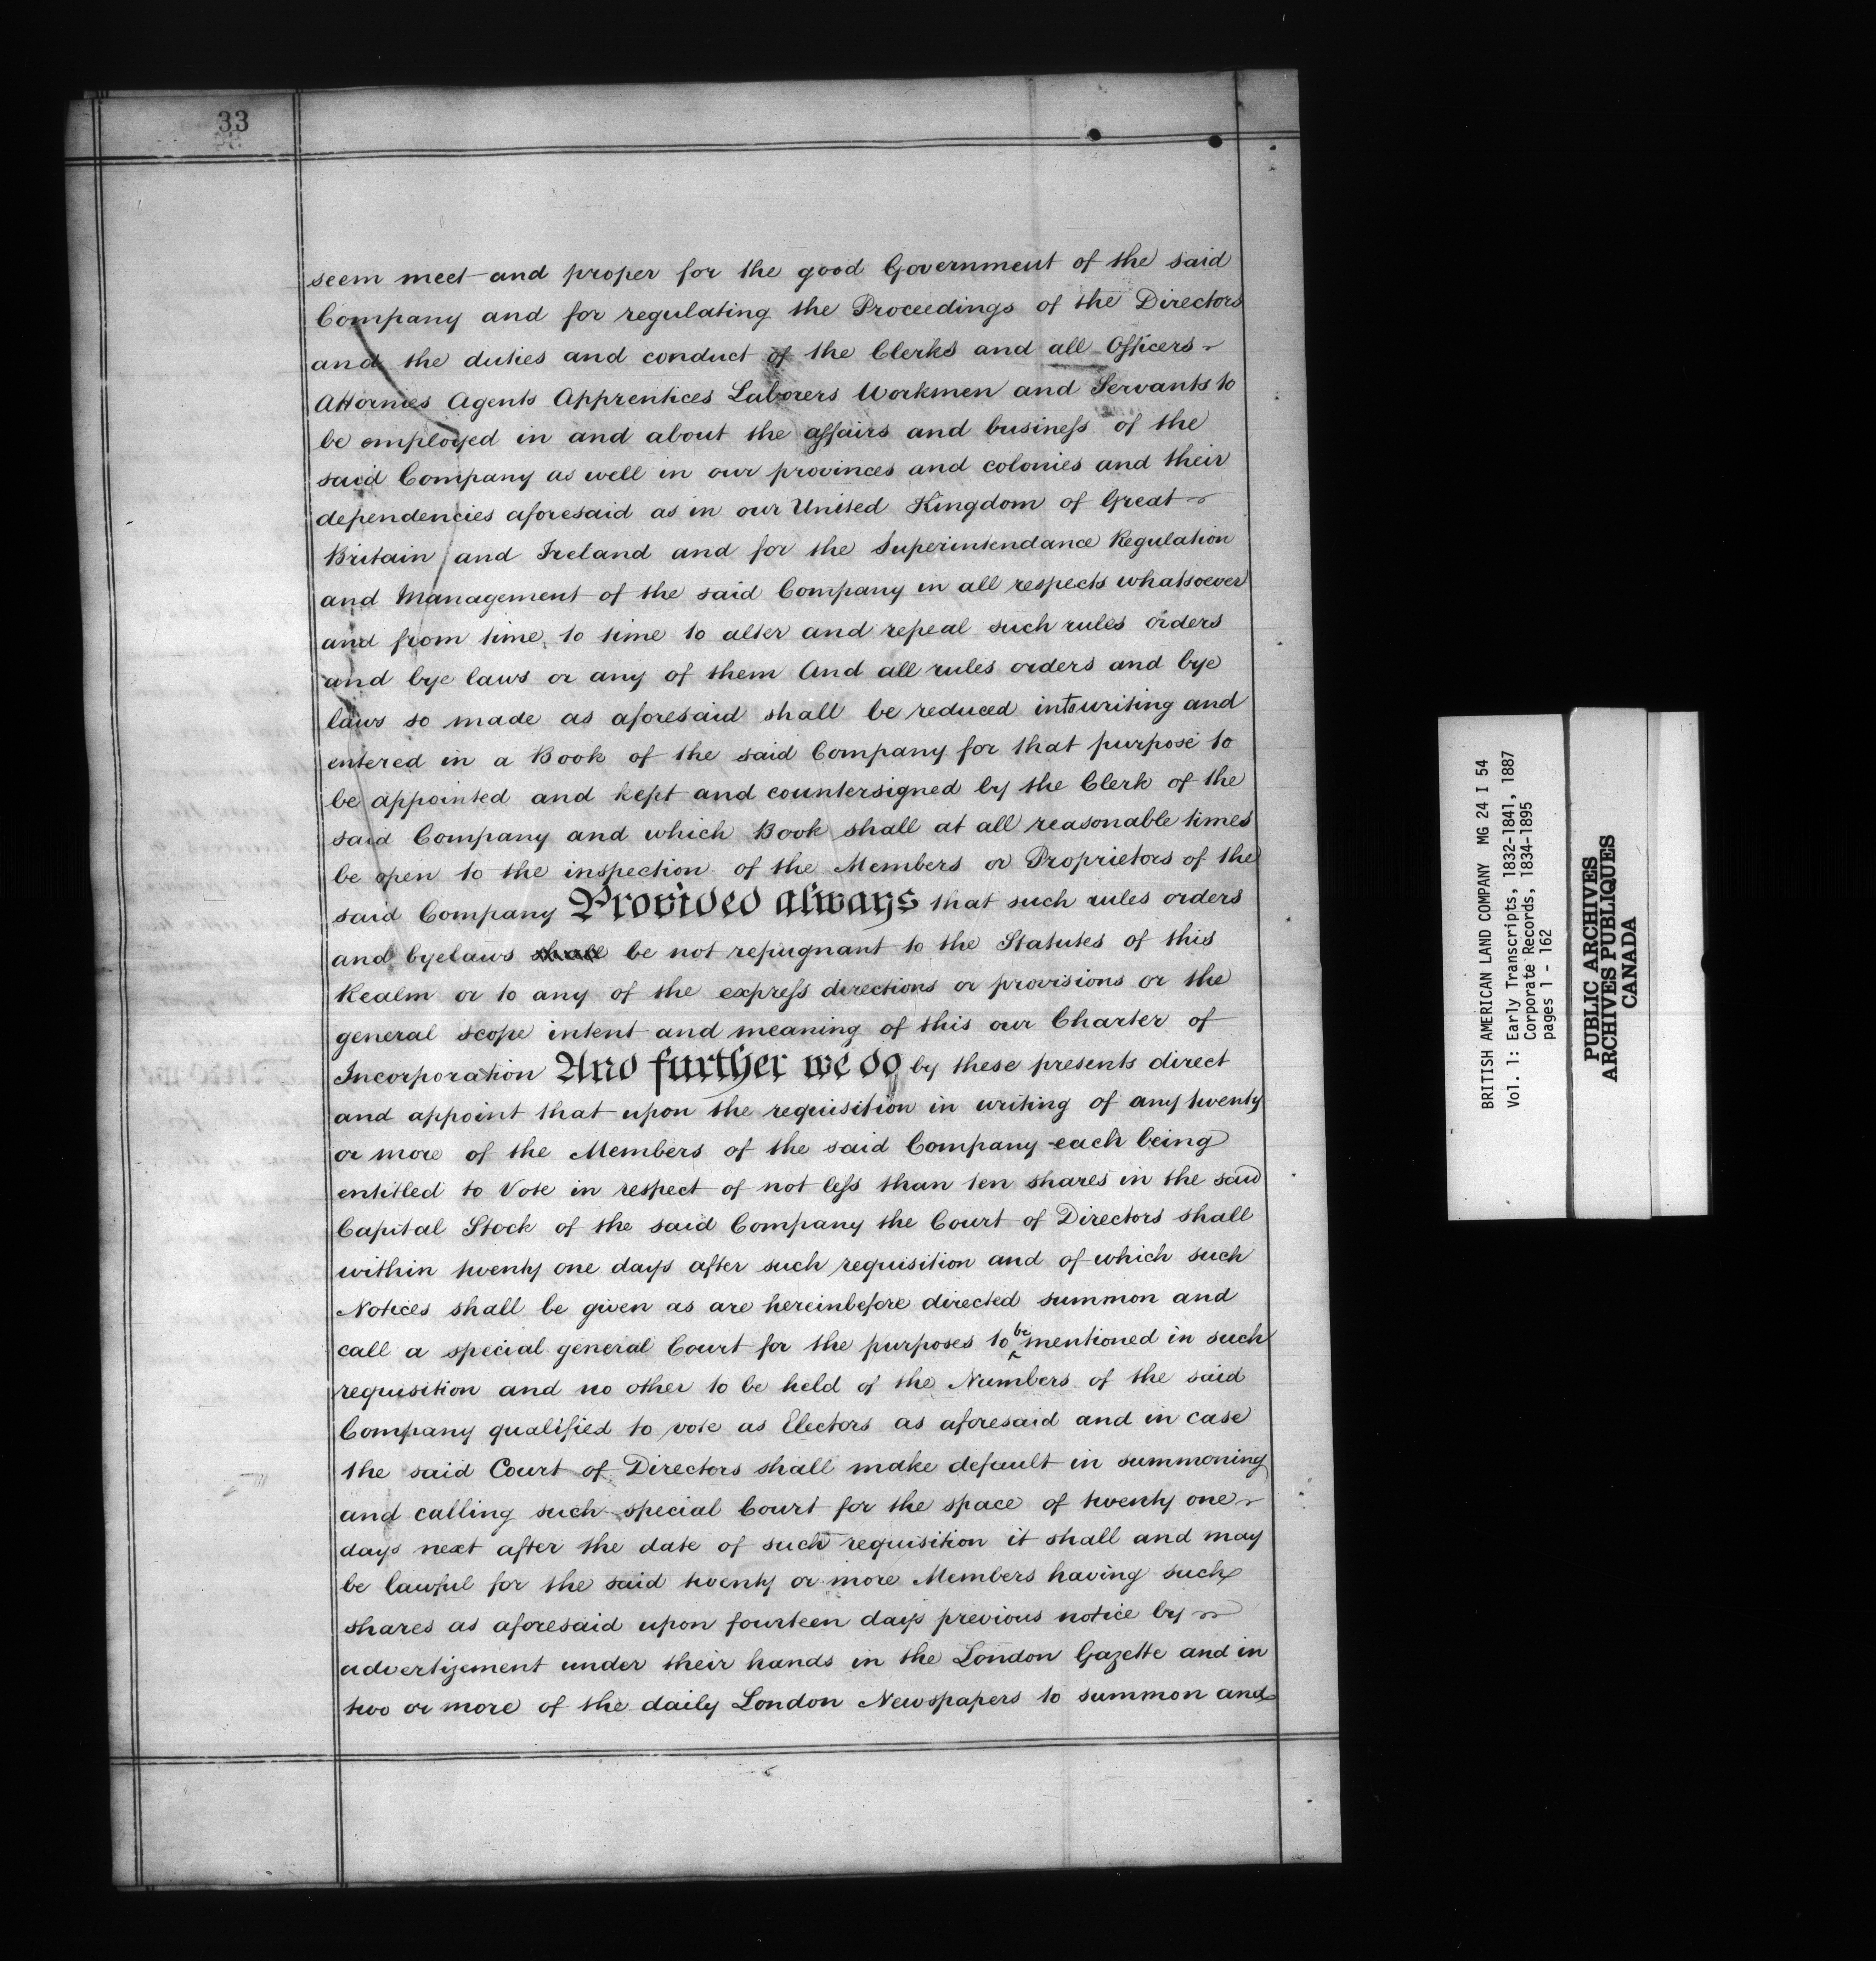 33
seem meet and proper for the good Government of the said
Company and for regulating the Proceedings of the Directors
and the duties and conduct of the Clerks and all Officers
Attornies Agents Apprentices Laborers Workmen and Servants to
be employed in and about the affairs and business of the
said Company as well in our provinces and colonies and their
dependencies aforesaid as in our United Kingdom of Great
Britain and Ireland and for the Superintendance Regulation
and Management of the said Company in all respects whatsoever
and from time to time to alter and repeal such rules orders
and bye laws or any of them And all rules orders and bye
laws so made as aforesaid shall be reduced into writing and
entered in a Book of the said Company for that purpose to
be appointed and kept and countersigned by the Clerk of the
said Company and which Book shall at all reasonable times
be open to the inspection of the Members or Proprietors of the
said Company Provided always that such rules orders
and byelaws shall be not repugnant to the Statutes of this
Realm or to any of the express directions or provisions or the
general scope intent and meaning of this our Charter of
Incorporation And further we do by these presents direct
and appoint that upon the requisition in writing of any twenty
or more of the Members of the said Company each being
entitled to Vote in respect of not less than ten shares in the said
Capital Stock of the said Company the Court of Directors shall
within twenty one days after such requisition and of which such
Notices shall be given as are hereinbefore directed summon and
call a special general Court for the purposes to be mentioned in such
requisition and no other to be held of the Numbers of the said
Company qualified to vote as Electors as aforesaid and in case
the said Court of Directors shall make default in summoning
and calling such special Court for the space of twenty one
days next after the date of such requisition it shall and may
be lawful for the said twenty or more Members having such
shares as aforesaid upon fourteen days previous notice by
advertizement under their hands in the London Gazette and in
two or more of the daily London Newspapers to summon and
BRITISH AMERICAN LAND COMPANY MG 24 I 54
Vol. 1: Early Transcripts, 1832-1841, 1887
Corporate Records, 1834-1895
pages 1 - 162
PUBLIC ARCHIVES
ARCHIVES PUBLIQUES
CANADA